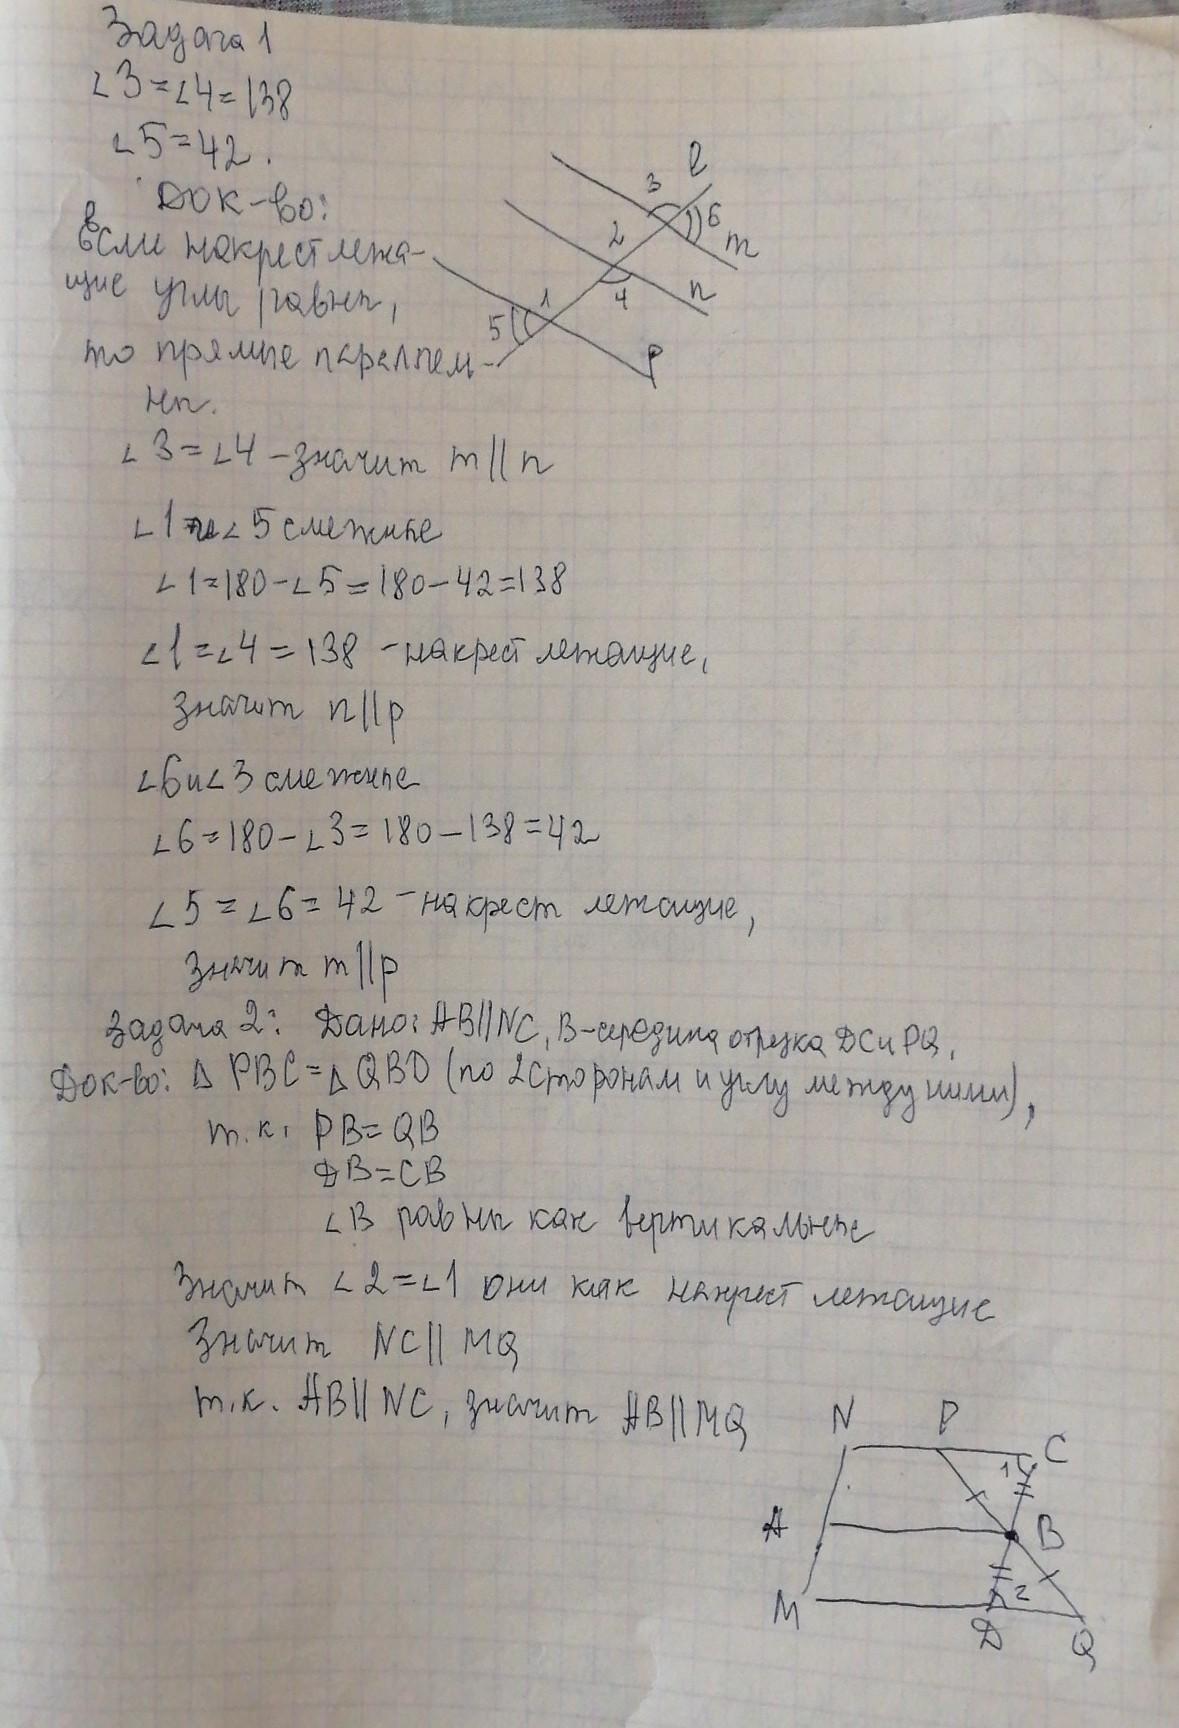 Задача 1
∠3=∠4=138
∠5=42.
Док-во:
Если накрест лежа-
щие углы равны,
то прямые параллель-
ны.
∠3=∠4 - значит m||n
∠1 и ∠5 смежные
∠1=180-∠5=180-42=138
∠1=∠4=138 - накрест лежащие,
значит n||p
∠6 и ∠3 смежные
∠6=180-∠3=180-138=42
∠5=∠6=42 - накрест лежащие,
значит m||p
3
l
6
2
m
1
4
n
5
p
Задача 2: Дано: AB||NC, B-середина отрезка DC и PQ.
Док-во: △ PBC=△ QBD (по 2 сторонам и углу между ними),
т.к. PB=QB
DB=CB
∠B равны как вертикальные
Значит ∠2=∠1 они как накрест лежащие
Значит NC||MQ
т.к. AB||NC, значит AB||MQ
N P C
1
A B
2
M D Q